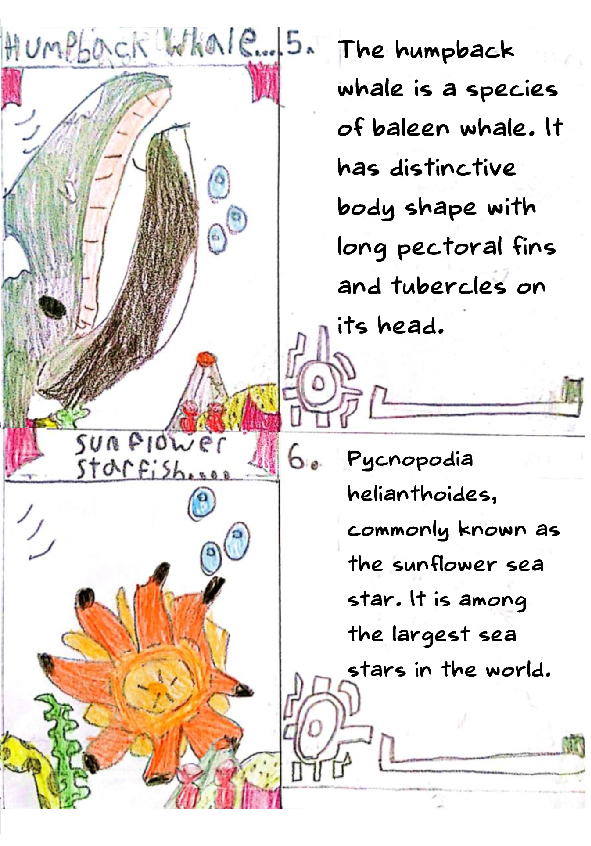 Humpback Whale....
5.
The humpback
whale is a species
of baleen whale. It
has distinctive
body shape with
long pectoral fins
and tubercles on
its head.
sunflower
starfish.....
6.
Pycnopodia
helianthoides,
commonly known as
the sunflower sea
star. It is among
the largest sea
stars in the world.